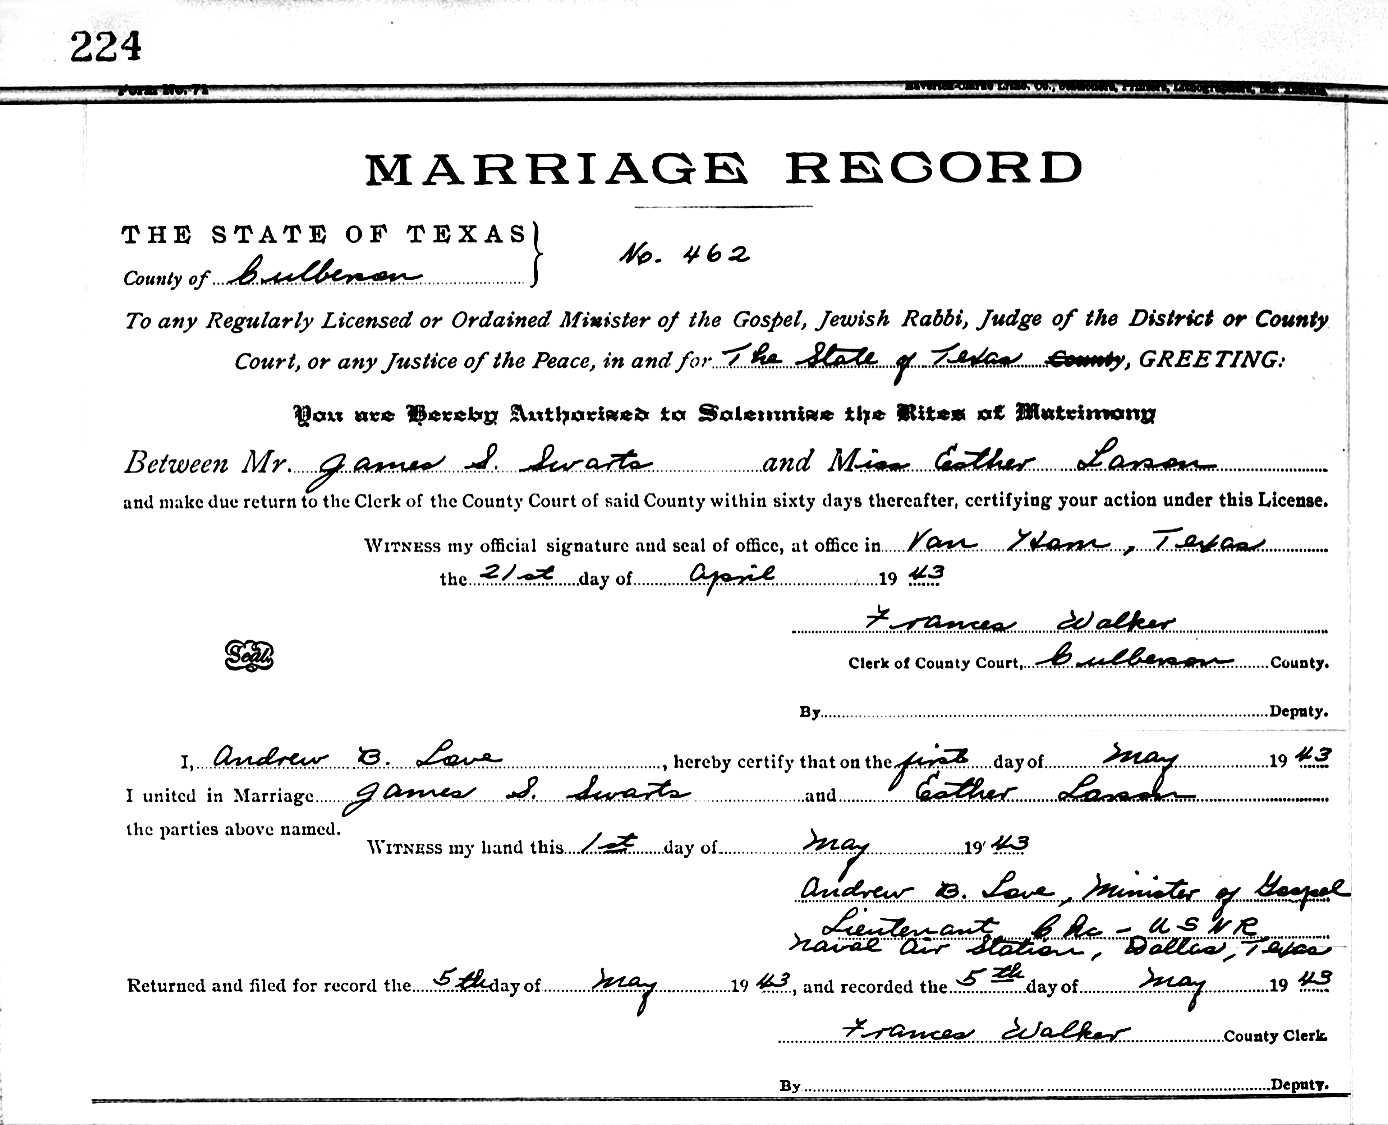 224
Form No. 71
MARRIAGE RECORD
THE STATE OF TEXAS
No. 462
County of Culberson
To any Regularly Licensed or Ordained Minister of the Gospel, Jewish Rabbi, Judge of the District or County
Court, or any Justice of the Peace, in and for The State of Texas County, GREETING:
You are Hereby Authorized to Solemnize the Rites of Matrimony
Between Mr. James S. Swarts and Miss Esther Larson
and make due return to the Clerk of the County Court of said County within sixty days thereafter, certifying your action under this License.
WITNESS my official signature and seal of office, at office in Van Horn, Texas
the 21st day of April 1943
Frances Walker
Seal
Clerk of County Court, Culberson County.
By Deputy.
I, Andrew B. Love, hereby certify that on the first day of May 1943
I united in Marriage James S. Swarts and Esther Larson
the parties above named.
WITNESS my hand this 1st day of May 1943
Andrew B. Love, Minister of Gospel
Lieutenant ChC - USNR
Naval Air Station, Dallas, Texas
Returned and filed for record the 5th day of May 1943, and recorded the 5th day of May 1943
Frances Walker County Clerk
By Deputy.